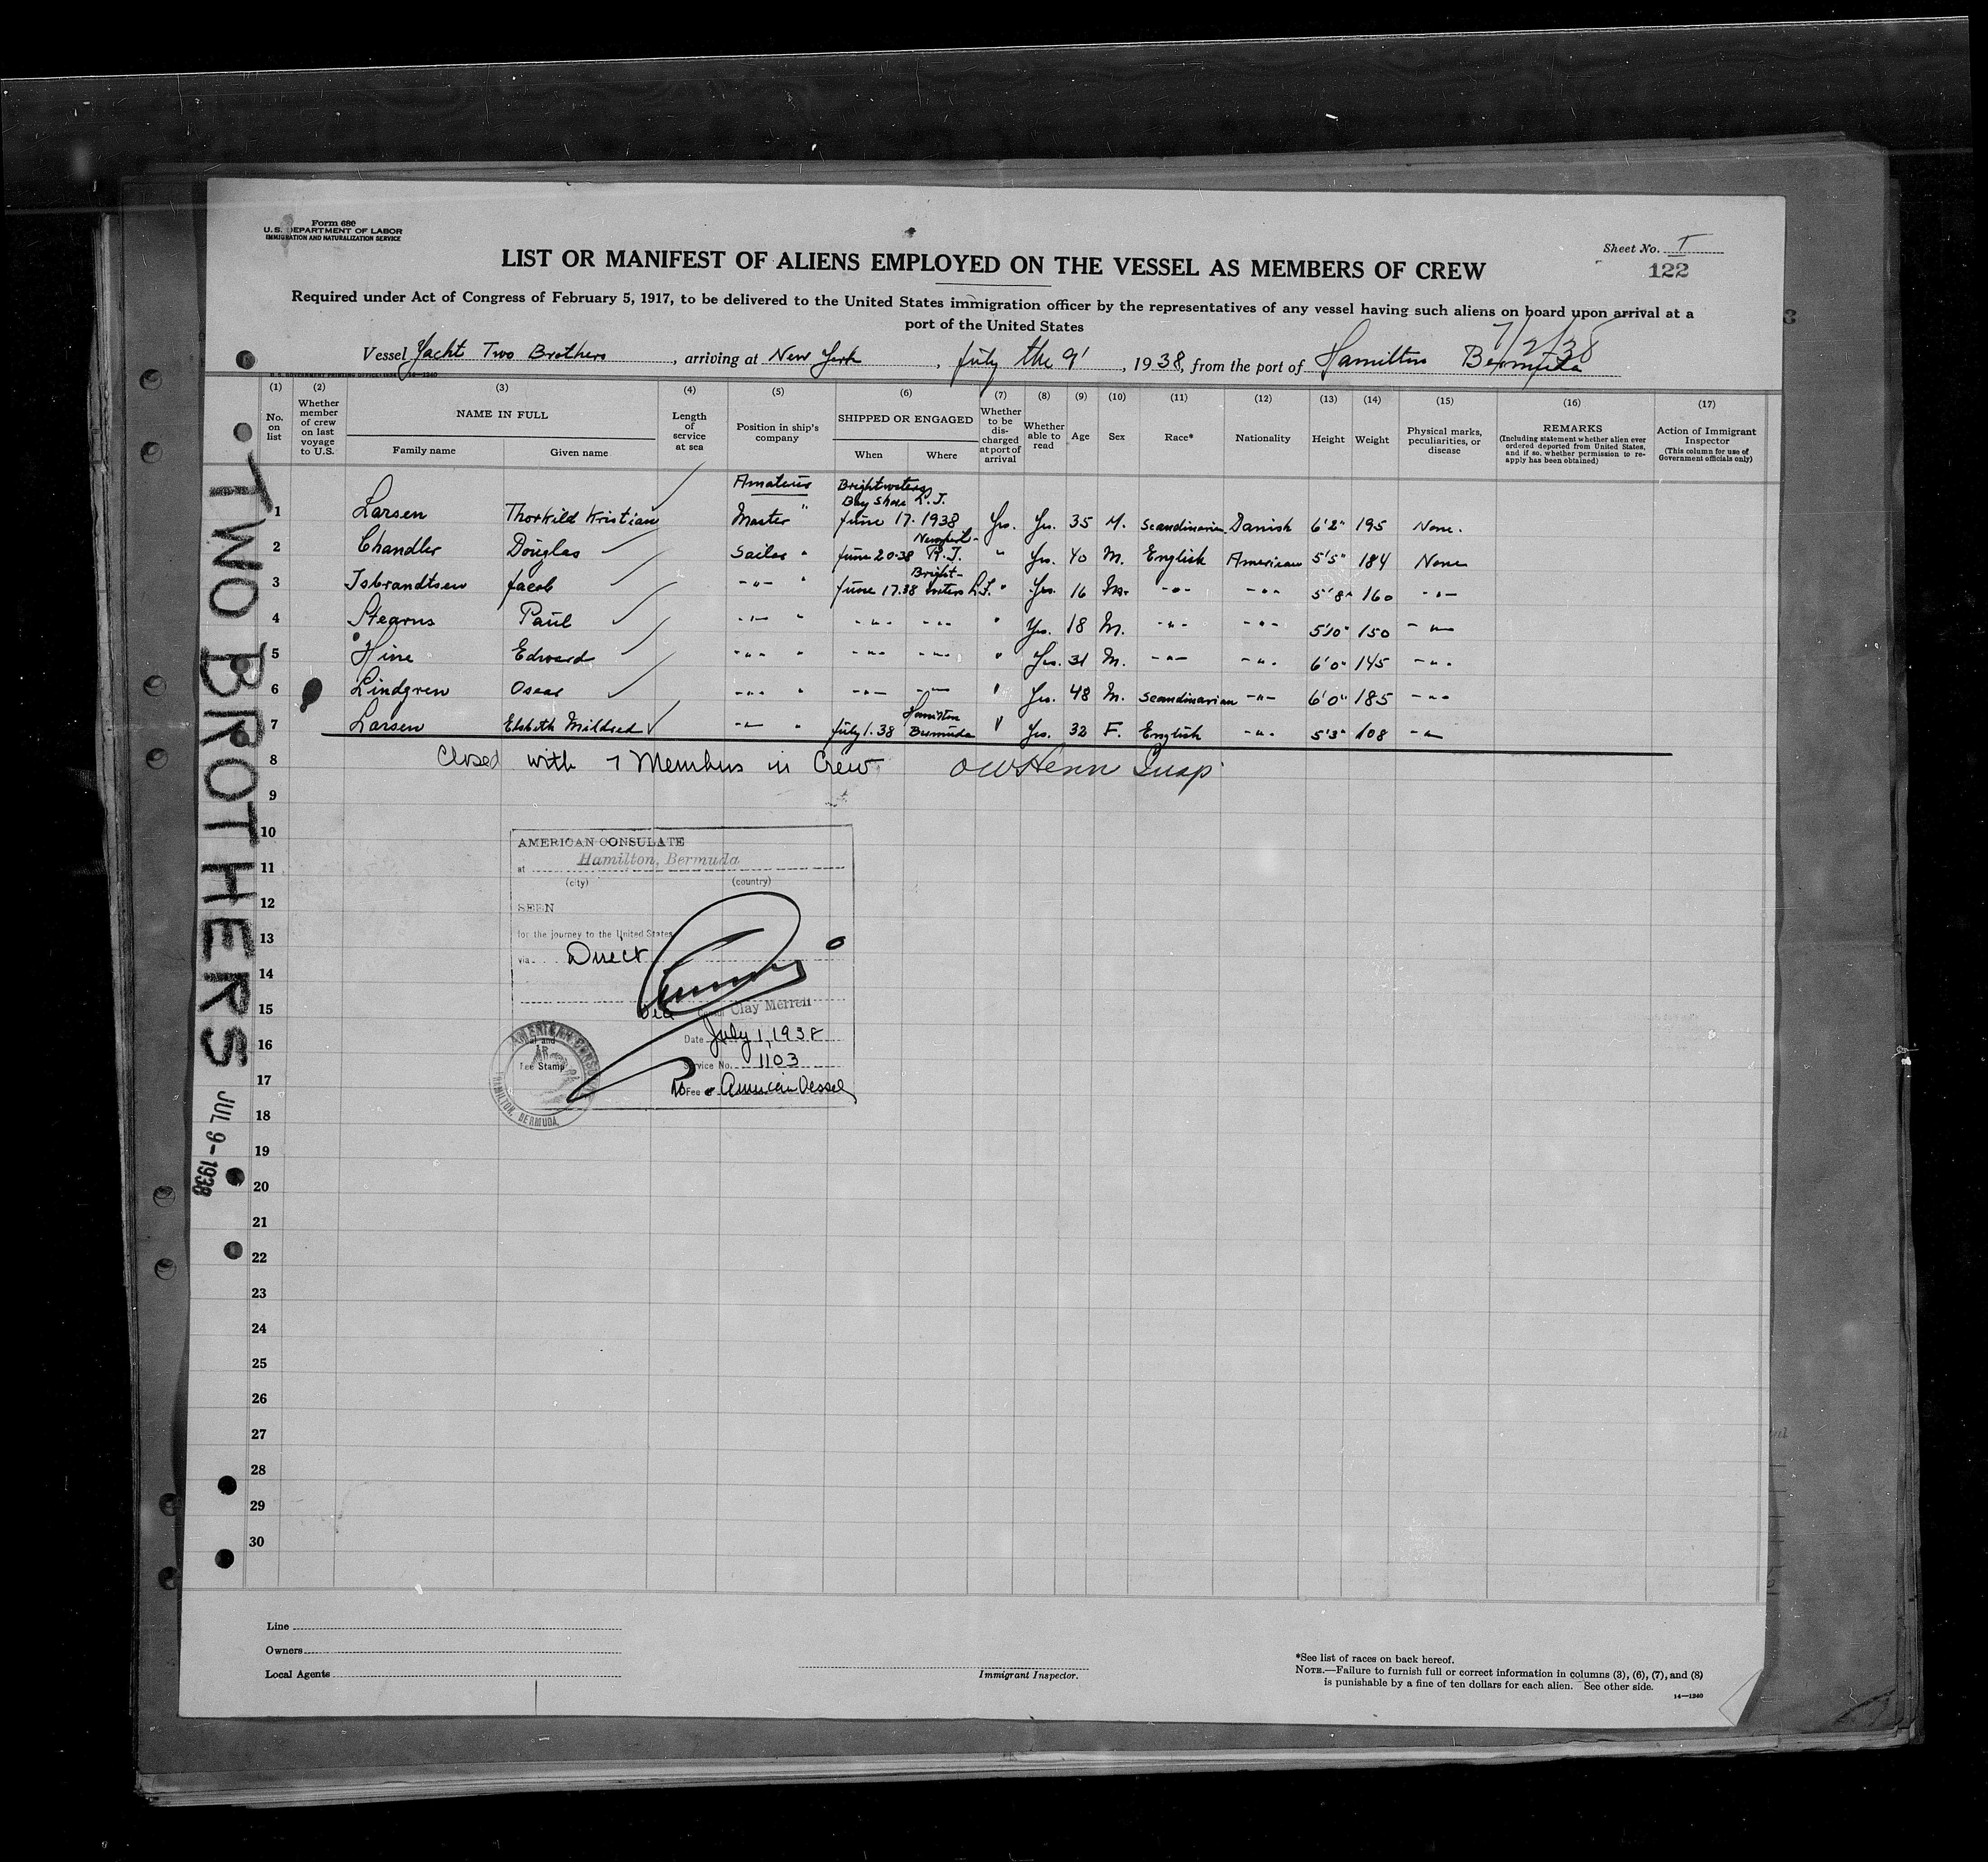 Form 680
U.S. DEPARTMENT OF LABOR
IMMIGRATION AND NATURALIZATION SERVICE
Sheet No. I
122
LIST OR MANIFEST OF ALIENS EMPLOYED ON THE VESSEL AS MEMBERS OF CREW
Required under Act of Congress of February 5, 1917, to be delivered to the United States immigration officer by the representatives of any vessel having such aliens on board upon arrival at a
port of the United States
7/2/38
Vessel Yacht Two Brothers, arriving at New York, July the 9', 1938, from the port of Hamilton Bermuda
(1) (2) (3) (4) (5) (6) (7) (8) (9) (10) (11) (12) (13) (14) (15) (16) (17)
No. on list
Whether member of crew on last voyage to U.S.
NAME IN FULL
Family name Given name
Length of service at sea
Position in ship's company
SHIPPED OR ENGAGED
When Where
Whether to be discharged at port of arrival
Whether able to read
Age
Sex
Race*
Nationality
Height
Weight
Physical marks, peculiarities, or disease
REMARKS
(Including statement whether alien ever ordered deported from United States, and if so, whether permission to re-apply has been obtained)
Action of Immigrant Inspector
(This column for use of Government officials only)
Amateurs Brightwaters
Bay Shore L.I.
1 Larsen Thorkild Kristian Master " June 17. 1938 Yes. Yes. 35 M. Scandinavian Danish 6'2" 195 None.
Newport-
2 Chandler Douglas Sailor " June 20.38 R.I. " Yes. 40 M. English American 5'5" 184 None
Bright-
3 Isbrandtsen Jacob -"- " June 17.38 waters L.I. " Yes. 16 M. -"- -"- 5'8" 160 -"-
4 Stearns Paul -"- " -"- -"- " Yes. 18 M. -"- -"- 5'10" 150 -"-
5 Hine Edward -"- " -"- -"- " Yes. 31 M. -"- -"- 6'0" 145 -"-
6 Lindgren Oscar -"- " -"- -"- " Yes. 48 M. Scandinavian -"- 6'0" 185 -"-
Hamilton
7 Larsen Elsbeth Mildred -"- " July 1.38 Bermuda " Yes. 32 F. English -"- 5'3" 108 -"-
8 Closed with 7 Members in Crew. OW Henn Insp.
9
10
11
12
13
14
15
16
17
18
19
20
21
22
23
24
25
26
27
28
29
30
AMERICAN CONSULATE
at Hamilton, Bermuda
(city) (country)
SEEN
for the journey to the United States
via Direct
Clay Merrell
Date July 1, 1938
Service No. 1103
No Fee American Vessel
Fee Stamp
AMERICAN CONSULATE
HAMILTON, BERMUDA
TWO BROTHERS
JUL 9-1938
Line
Owners
Local Agents
Immigrant Inspector.
*See list of races on back hereof.
NOTE.—Failure to furnish full or correct information in columns (3), (6), (7), and (8)
is punishable by a fine of ten dollars for each alien. See other side.
14—1240